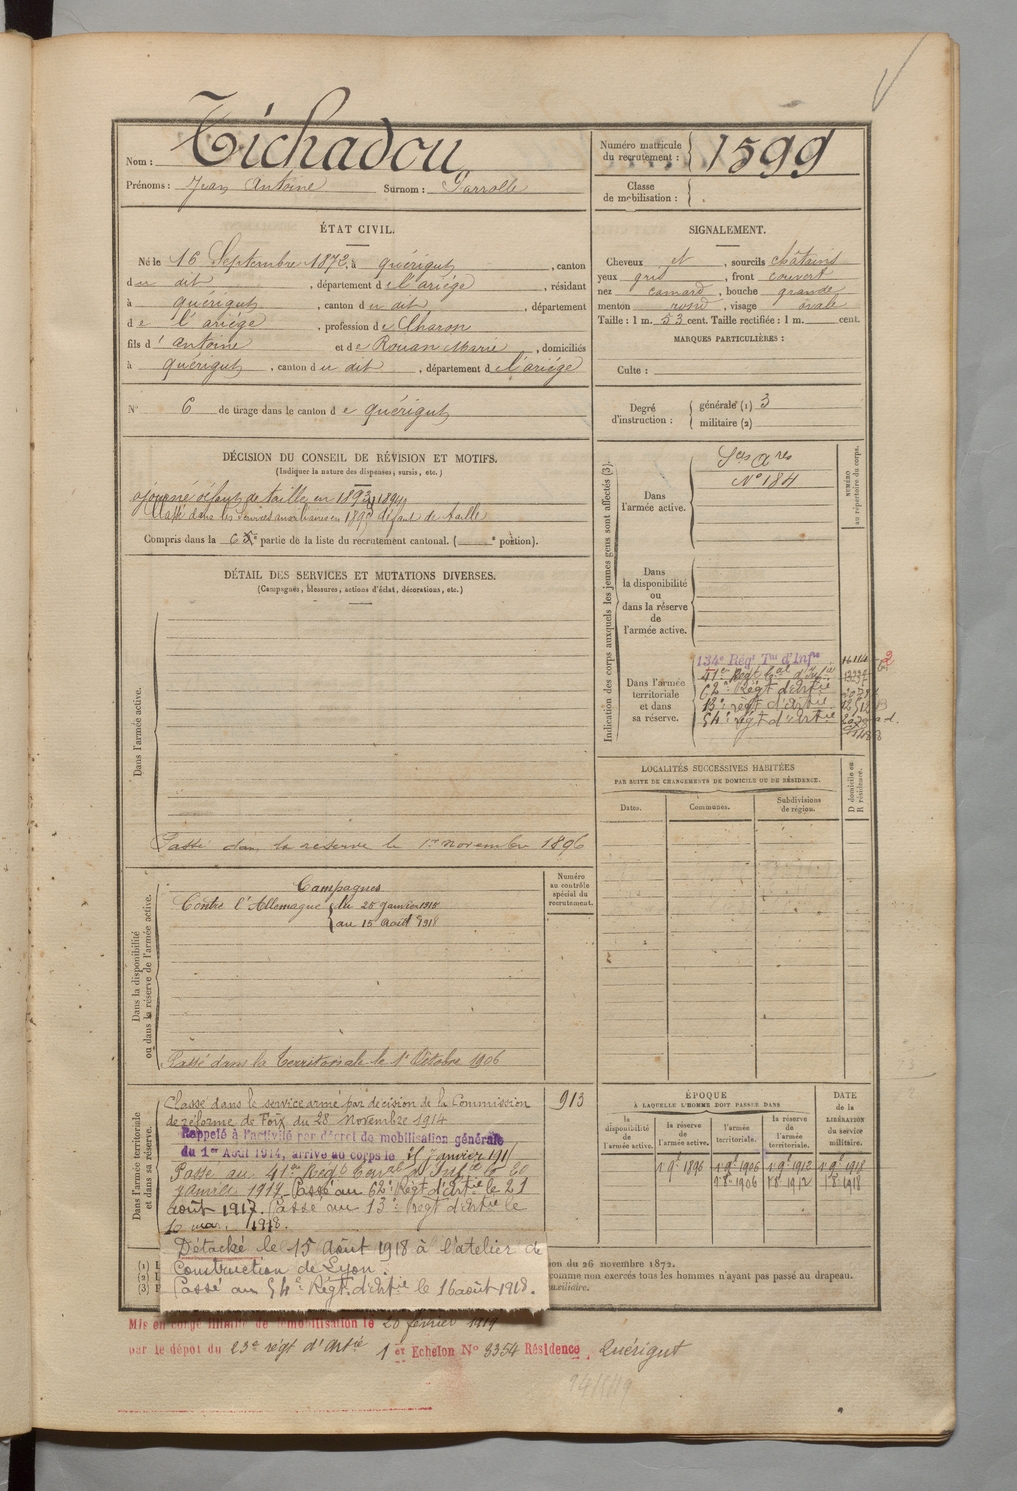 Nom : Tichadou
Prénoms : Jean Antoine Surnom : Garrolle
Numéro matricule
du recrutement : 1599
Classe
de mobilisation :
ÉTAT CIVIL.
Né le 16 Septembre 1872, à quérigut, canton
du dit, département de l'ariége, résidant
à quérigut, canton du dit, département
de l'ariége, profession de Charon
fils d'antoine et de Rouan Marie, domiciliés
à quérigut, canton du dit, département de l'ariége
N° 6 de tirage dans le canton de quérigut
SIGNALEMENT.
Cheveux et, sourcils châtains
yeux gris, front couvert
nez camard, bouche grande
menton rond, visage ovale
Taille : 1 m. 53 cent. Taille rectifiée : 1 m. cent.
MARQUES PARTICULIÈRES :
Culte :
Degré
d'instruction :
générale (1) 3
militaire (2)
DÉCISION DU CONSEIL DE RÉVISION ET MOTIFS.
(Indiquer la nature des dispenses, sursis, etc.)
ajourné défaut de taille, en 1893, 1894
Classé dans les services auxiliaires en 1895 défaut de taille
Compris dans la 6e partie de la liste du recrutement cantonal. ( e portion).
DÉTAIL DES SERVICES ET MUTATIONS DIVERSES.
(Campagnes, blessures, actions d'éclat, décorations, etc.)
Dans l'armée active.
Passé dans la réserve le 1er novembre 1896
Indication des corps auxquels les jeunes gens sont affectés (3).
NUMÉRO
au répertoire du corps.
Dans
l'armée active.
Sces Ares
N° 184
Dans
la disponibilité
ou
dans la réserve
de
l'armée active.
Dans l'armée
territoriale
et dans
sa réserve.
134e Régt Tal d'Infie
41er Régt Cal d'Infie
62e Régt d'Artie
13e régt d'Artie
54e régt d'Artie
LOCALITÉS SUCCESSIVES HABITÉES
PAR SUITE DE CHANGEMENTS DE DOMICILE OU DE RÉSIDENCE.
Dates.
Communes.
Subdivisions
de région.
D domicile ou
R résidence.
Dans la disponibilité
ou dans la réserve de l'armée active.
Numéro
au contrôle
spécial du
recrutement.
Campagnes
Contre l'Allemagne du 25 janvier 1915
au 15 Août 1918
Passé dans la Territoriale le 1er Octobre 1906
Dans l'armée territoriale
et dans sa réserve.
Classé dans le service armé par décision de la Commission
de réforme de Foix du 28 Novembre 1914
913
Rappelé à l'activité par décret de mobilisation générale
du 1er Août 1914, arrivé au corps le 25 Janvier 191
Passé au 41er Régt Terral d'Infie le 20
janvier 1917. Passé au 62e Régt d'Artie le 21
août 1917. Passé au 13e régt d'artie le
1918.
Détaché le 15 Août 1918 à l'atelier de
Construction de Lyon.
Passé au 54e Régt d'Artie le 16 août 1918.
ÉPOQUE
À LAQUELLE L'HOMME DOIT PASSER DANS
DATE
de la
LIBÉRATION
du service
militaire.
la
disponibilité
de
l'armée active.
la réserve
de
l'armée active.
l'armée
territoriale.
la réserve
de
l'armée
territoriale.
1 9e 1896 1 9e 1906 1 9e 1912 1 9e 1918
1 8e 1906 1 8 1912 1 8 1918
(1)
(2)
(3)
ion du 26 novembre 1872.
comme non exercés tous les hommes n'ayant pas passé au drapeau.
auxiliaire.
Mis en congé illimité de démobilisation le 20 février 1919
par le dépot du 23e régt d'Artie 1er Echelon N° 8354 Résidence, Quérigut